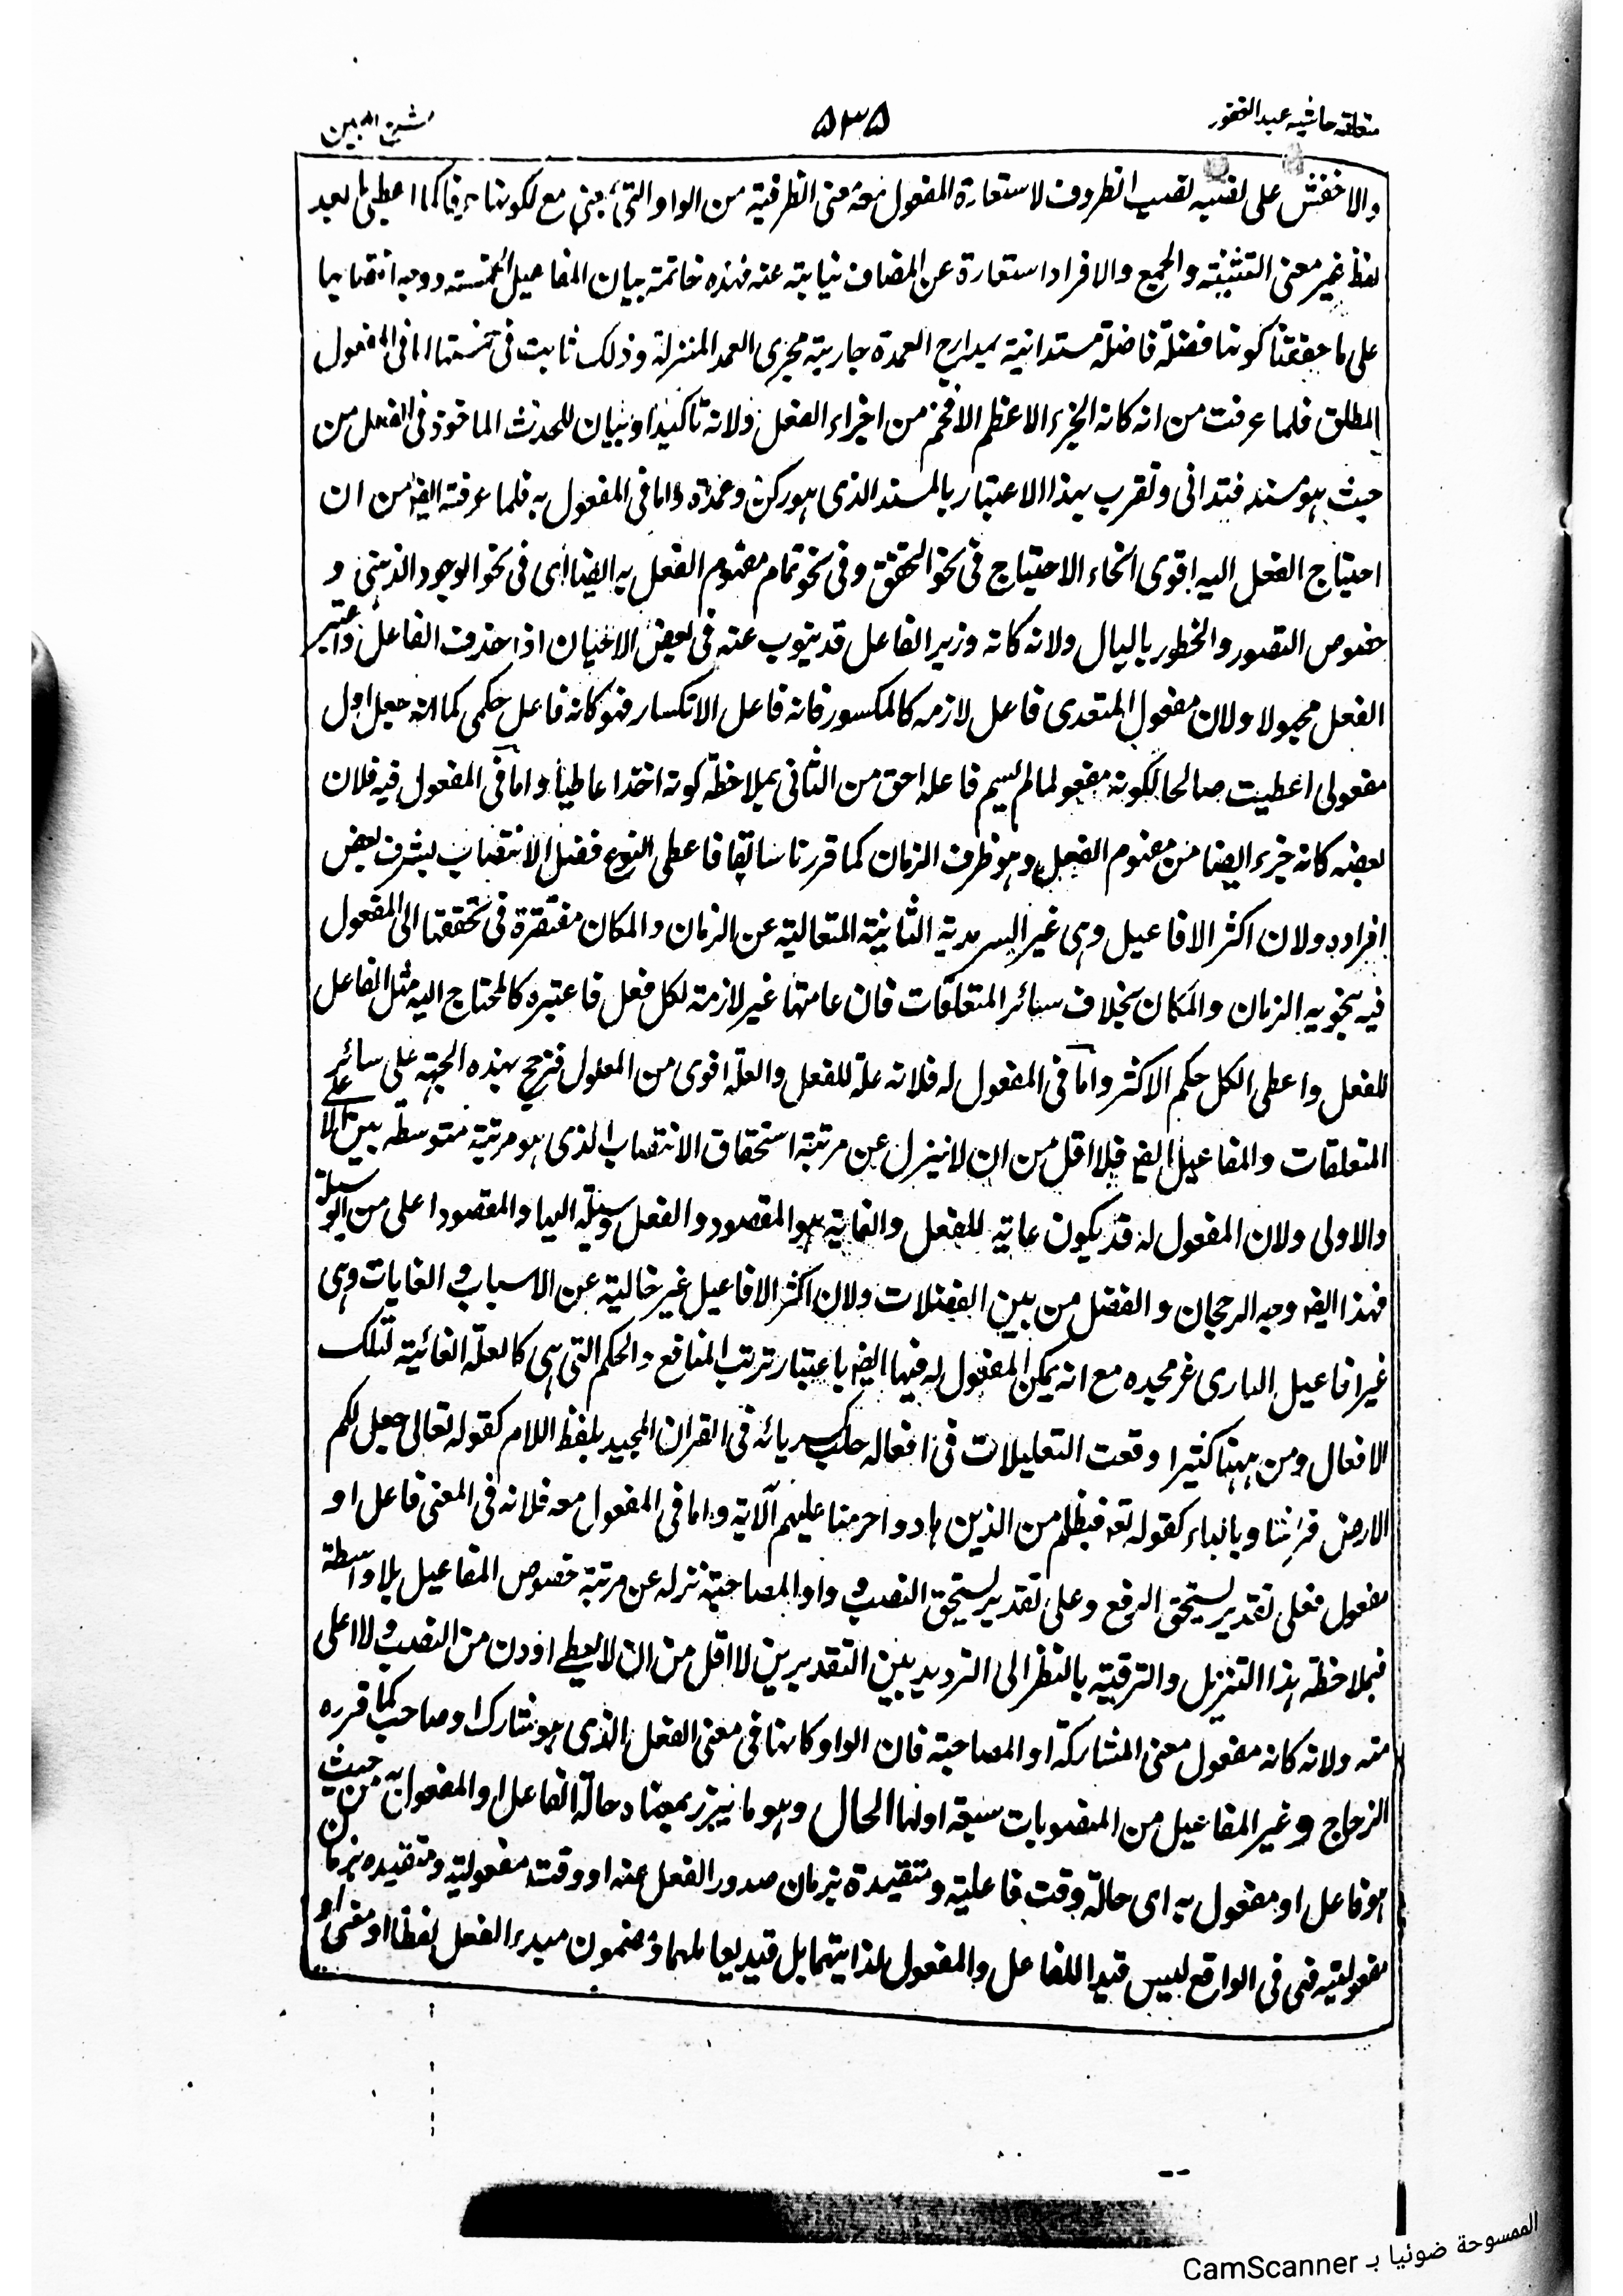 متعلقه حاشیه عبد الغفور
۵۳۵
والاخفش على نصبه نصب الظروف لاستعارة المفعول معه معنى الظرفية من الواو التى بمعنى مع لكونها حرفا كما اعطى ما بعد
لفظ غير معنى التثنية والجمع والافراد استعارة عن المضاف نيابة عنه فهذه خاتمة بيان المفاعيل الخمسة ووجه انتصابها
على ما حققنا كونها فضلة فاضلة مستدانية بمدارج العمدة جارية مجرى العمد المنزلة وذلك ثابت فى خمستها اما فى المفعول
المطلق فلما عرفت من انه كانه الجزء الاعظم الافخم من اجزاء الفعل ولانه تاكيد او بيان للحدث الماخوذ فى الفعل من
حيث هو مسند فتدانى وتقرب بهذا الاعتبار بالمسند الذى هو ركن وعمدة واما فى المفعول به فلما عرفته ايضا من ان
احتياج الفعل اليه اقوى انحاء الاحتياج فى نحو التحقق وفى نحو تمام مفهوم الفعل به ايضا اى فى نحو الوجود الذهنى و
خصوص التصور والخطور بالبال ولانه كانه وزير الفاعل قد ينوب عنه فى بعض الاحيان اذا حذف الفاعل واعتبر
الفعل مجهولا ولان مفعول المتعدى فاعل لازمه كالمكسور فانه فاعل الانكسار فهو كانه فاعل حكمى كما انه جعل اول
مفعولى اعطيت صالحا لكونه مفعول ما لم يسم فاعله احق من الثانى بملاحظة كونه اخذا عاطيا واما فى المفعول فيه فلان
بعضه كانه جزء ايضا من مفهوم الفعل وهو ظرف الزمان كما قررنا سابقا فاعطى النوع فضل الانتصاب بشرف بعض
افراده ولان اكثر الافاعيل وهى غير السرمدية الثانية المتعالية عن الزمان والمكان مفتقرة فى تحققها الى المفعول
فيه بنحويه الزمان والمكان بخلاف سائر المتعلقات فان عامتها غير لازمة لكل فعل فاعتبره كالمحتاج اليه مثل الفاعل
للفعل واعطى الكل حكم الاكثر واما فى المفعول له فلانه علة للفعل والعلة اقوى من المعلول فترجح بهذه الجهة على سائر
المتعلقات والمفاعيل ايضا فلا اقل من ان لا ينزل عن مرتبة استحقاق الانتصاب الذى هو مرتبة متوسطة بين الاعلى
والاولى ولان المفعول له قد يكون غاية للفعل والغاية هو المقصود والفعل وسيلة اليها والمقصود اعلى من الوسيلة
فهذا ايضا وجه الرجحان والفضل من بين الفضلات ولان اكثر الافاعيل غير خالية عن الاسباب والغايات وهى
غير افاعيل البارى عز مجده مع انه يمكن المفعول له فيها ايضا باعتبار ترتب المنافع والحكم التى هى كالعلة الغائية لتلك
الافعال ومن ههنا كثيرا وقعت التعليلات فى افعاله جل كبريائه فى القران المجيد بلفظ اللام كقوله تعالى جعل لكم
الارض فراشا وبالباء كقوله تع فبظلم من الذين هادوا حرمنا عليهم الآية واما فى المفعول معه فلانه فى المعنى فاعل او
مفعول فعلى تقدير يستحق الرفع وعلى تقدير يستحق النصب و واو المصاحبة نزله عن مرتبة خصوص المفاعيل بلا واسطة
فبملاحظة هذا التنزيل والترقية بالنظر الى الترديد بين التقديرين لا اقل من ان لا يعطى ادون من النصب ولا اعلى
منه ولانه كانه مفعول معنى المشاركة او المصاحبة فان الواو كانها فى معنى الفعل الذى هو شارك او صاحب كما قرره
الزجاج وغير المفاعيل من المنصوبات سبعة اولها الحال وهو ما يبرز بمعناه حالة الفاعل او المفعول به من حيث
هو فاعل او مفعول به اى حالة وقت فاعليته ومتقيدة بزمان صدور الفعل عنه او وقت مفعوليته ومتقيده بزمان
مفعوليته فهى فى الواقع ليس قيدا للفاعل والمفعول لذاتيهما بل قيد لعاملهما ومضمون مبدء الفعل لفظا او معنى او
الممسوحة ضوئيا بـ CamScanner